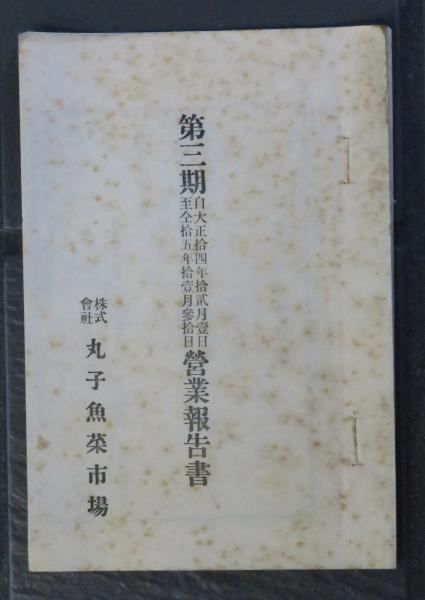 第三期自大正拾四年拾貳月壹日至仝拾五年拾壹月參拾日營業報告書
株式會社丸子魚菜市場